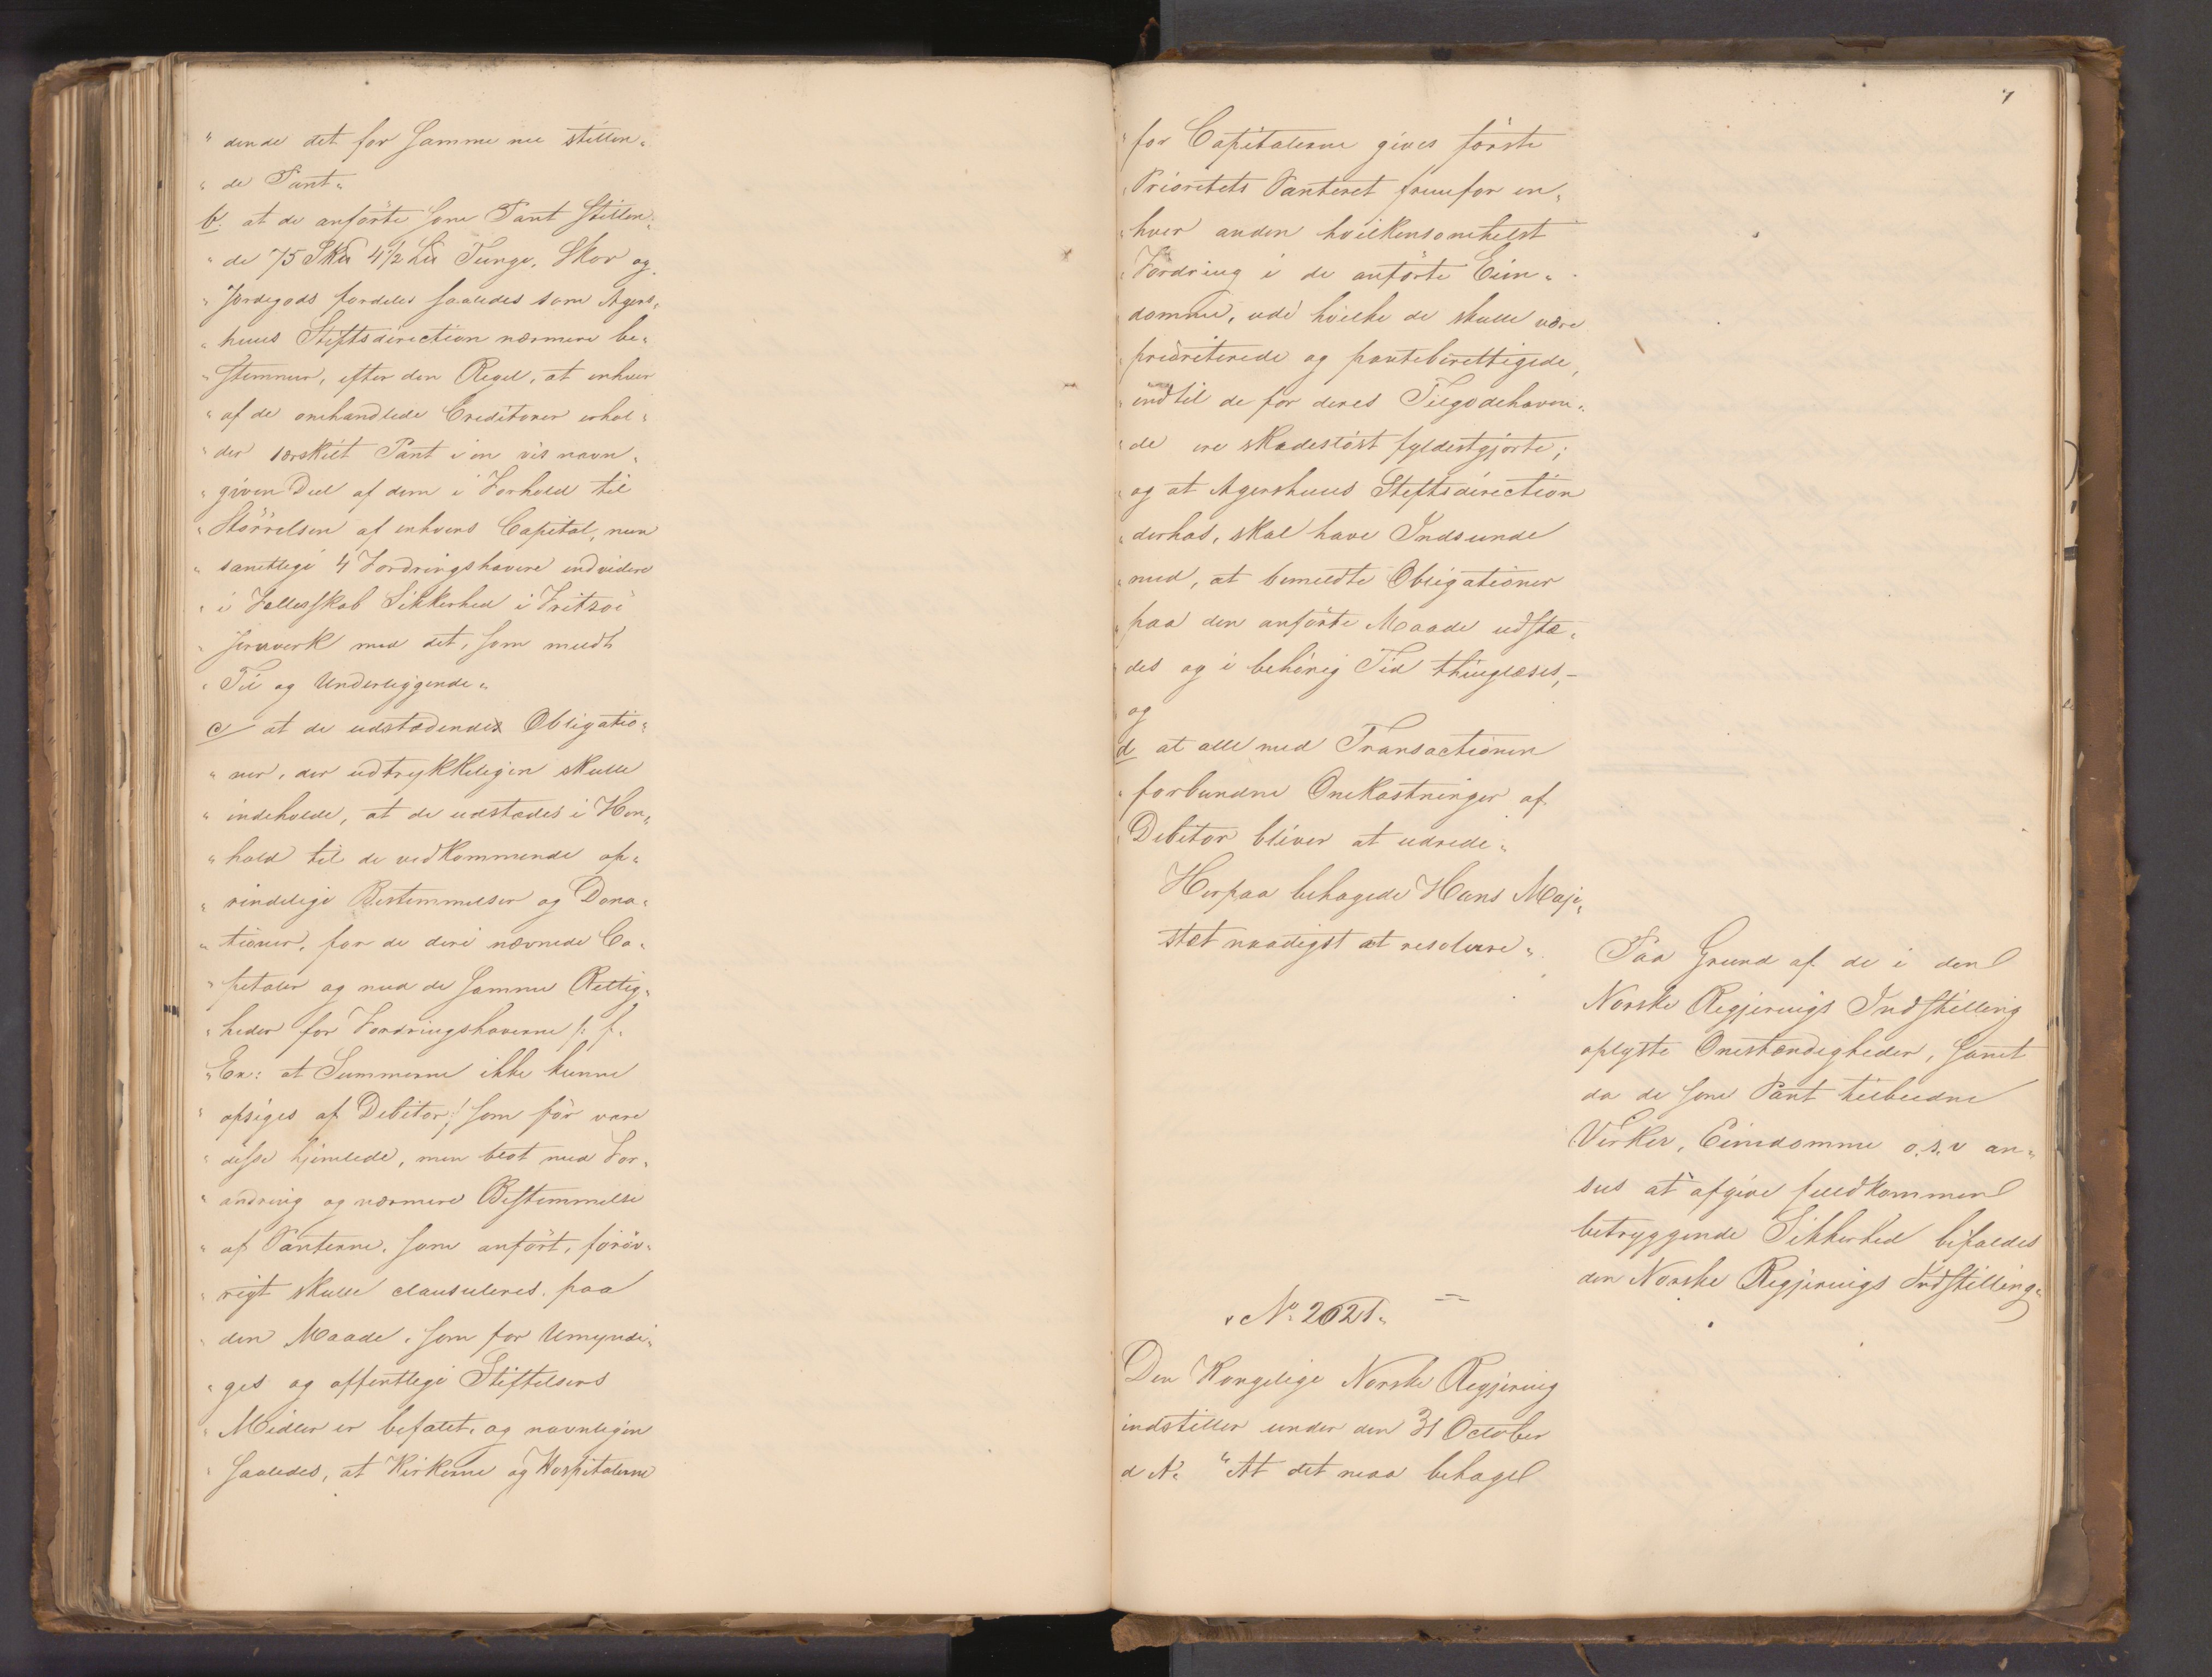 " dende det for samme nu stillen„
" de Pant„
b. at de anførte som Pant stillen„
" de 75 Skd 4½ Lis Tunge, Skov og
" Jordegods fordeles saaledes som Agers„
" huus Stiftsdirection nærmere be„
" stemmer, efter den Regel, at enhver
" af de omhandlede Creditorer erhol„
" der særskilt Pant i en vis navn„
" given Deel af dem i Forhold til
" Størrelsen af enhvers Capital, men
" samtlige 4 Fordringshavere endvidere
" i Fællesskab Sikkerhed i Fritzøe
" Jernverk med det, som meldt
" Til og Underliggende„
c/ at de udstædendes Obligatio„
" ner, der udtrykkeligen skulle
" indeholde, at de udstædes i Hen„
" hold til de vedkommende op„
" rindelige Bestemmelser og Dona„
" tioner, for de deri nævnede Ca„
" pitaler og med de samme Rettig„
" heder for Fordringshaverne /: f.
" Ex: at Summerne ikke kunne
" opsiges af Debitor :/ som før vare
" disse hjemlede, men blot med For„
" andring og nærmere Bestemmelse
" af Panterne, som anført, forøv„
" rigt skulle clausuleres paa
" den Maade, som for Umyndi„
" ges og offentlige Stiftelsers
" Midler er befalet, og navnligen
" saaledes, at Kirkerne og Hospitalerne
7
" for Capitalerne gives første
" Prioritets Panteret fremfor en„
" hver anden hvilkensomhelst
" Fordring i de anførte Eien„
" domme, udi hvilke de skulle være
" prioriterede og panteberettigede,
" indtil de for deres Tilgodehaven„
" de ere skadesløst fyldestgjorte;
" og at Agershuus Stiftsdirection
" derhos, skal have Indseende
" med, at bemeldte Obligationer
" paa den anførte Maade udstæ„
" des og i behørig Tid thinglæses,–
og
d at alle med Transactionen
" forbundne Omkostninger af
" Debitor bliver at udrede„
Herpaa behagede Hans Maje„
stæt naadigst at resolvere„
Paa Grund af de i den
Norske Regjerings Indstilling
oplyste Omstændigheder, samt
da de som Pant tilbudne
Verker, Eiendomme o.s.v an„
sees at afgive fuldkommen
betryggende Sikkerhed bifaldes
den Norske Regjerings Indstilling„
„ No 2021„
Den Kongelige Norske Regjering
indstiller under den 31 October
d A„ "At det maa behage